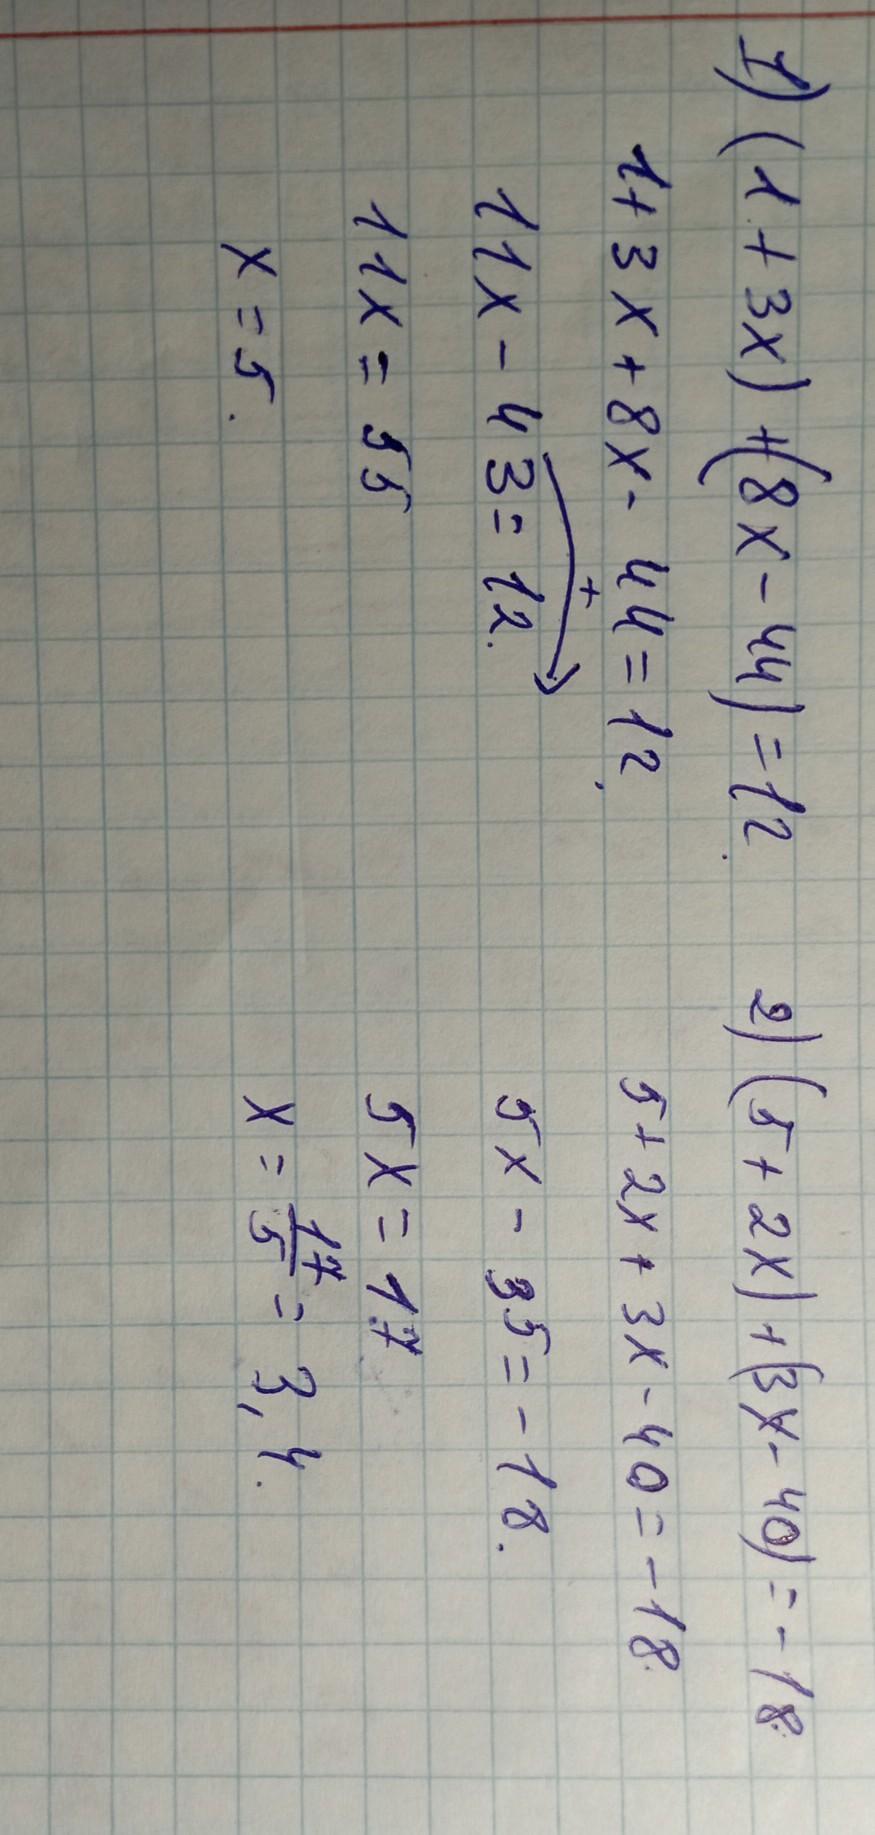 1) (1 + 3x) + (8x - 44) = 12.
1 + 3x + 8x - 44 = 12.
+
11x - 43 = 12.
11x = 55
x = 5.
2) (5 + 2x) + (3x - 40) = -18.
5 + 2x + 3x - 40 = -18.
5x - 35 = -18.
5x = 17
x = 17/5 = 3,4.